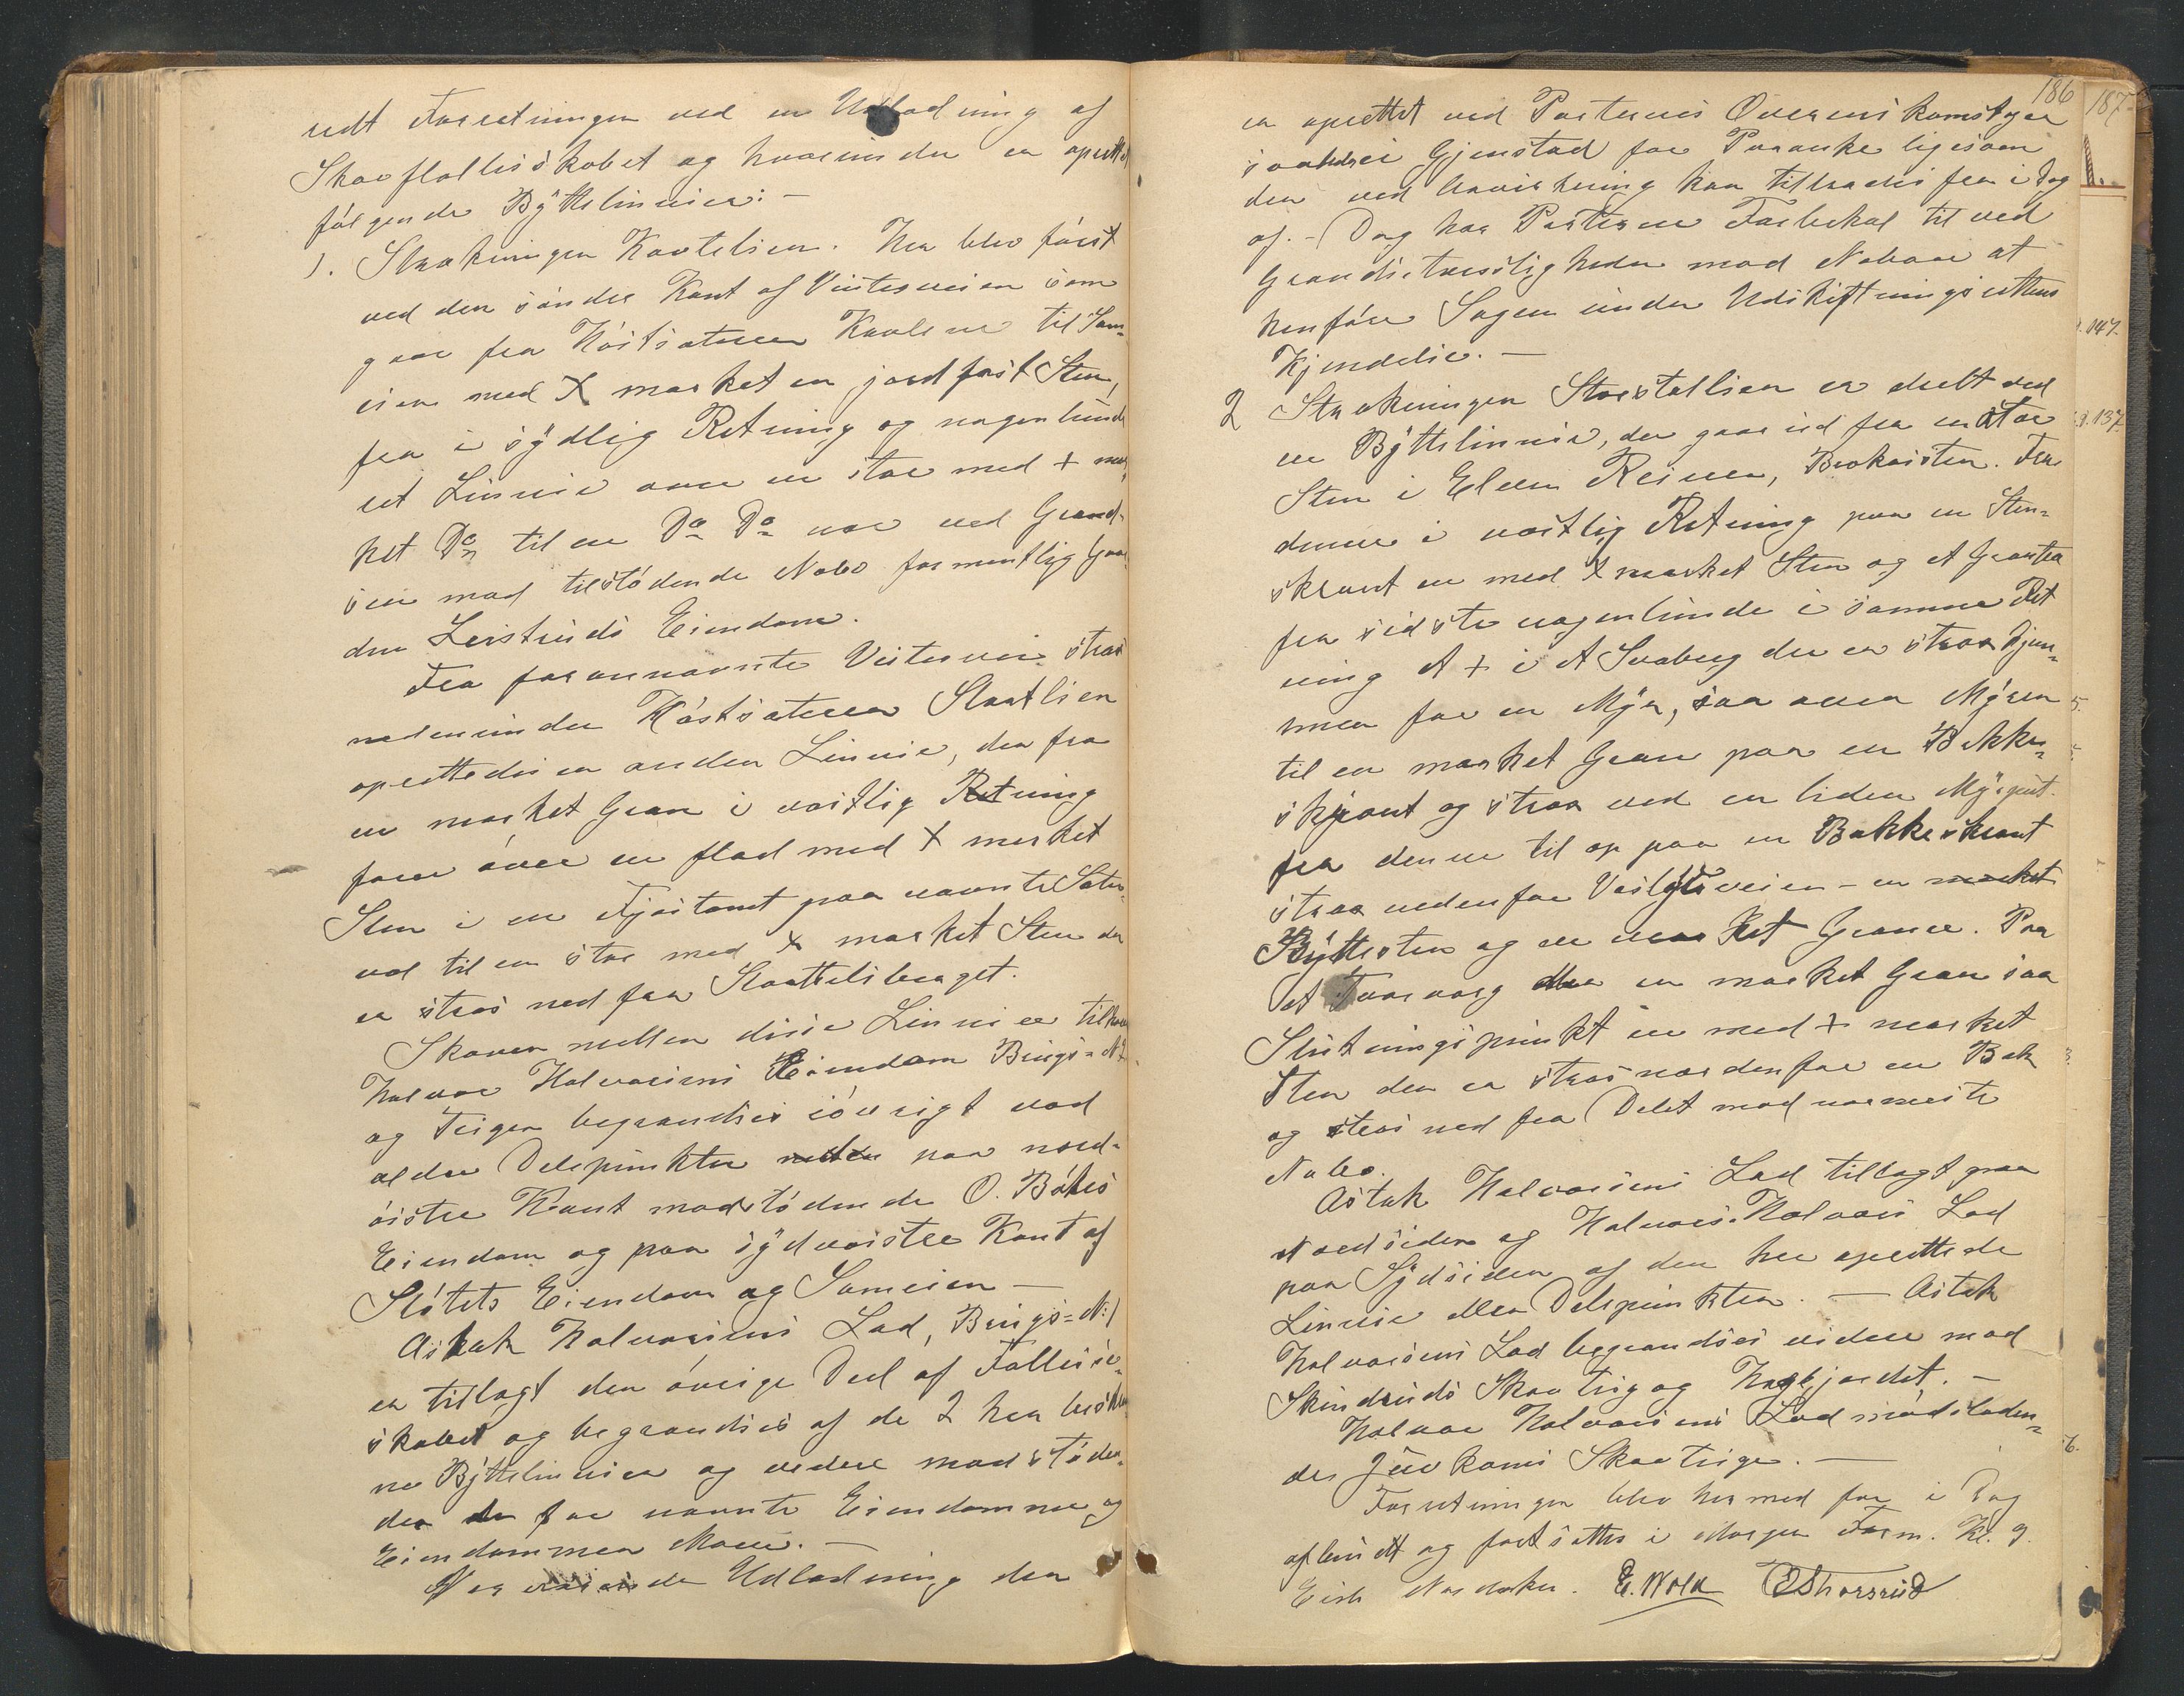 redt Forretningen ved en Udlodning af
Skovfællesskabet og hvorunder er oprettet
følgende Bÿttelinnier: –
1. Strækningen Kovtelien. Her blev først
ved den søndre Kant af Vintesveien som
gaar fra Høstsæteren til Sam-
eien med X mærket en jordfast Sten,
fra i sÿdlig Retning og nogenlunde
ret Linnie over en stor med + mær-
ket Do til en Do Do nær ved Grænd-
sen mod tilstødende Nabo formentlig Gaar
den Leistruds Eiendom.
Fra forannævnte Vintervei strax
nedenunder Høstsæteren Slaatlien
oprettedes en anden Linnie, der fra
en mærket Gran i vestlig Retning
farer over en flad med X mærket
Sten i en Fjøstomt paa nævnte Sæter-
vol til en stor med X mærket Sten der
er strax ned fra Slaattelibærget.
Skoven mellem disse Linnier tilhører
Halvor Halvorsens Eiendom Brugs-No 2
og Teigen begrændses iøvrigt ved
ældre Delepunkter paa nord-
østre Kant modstødende O. Bøhes
Eiendom og paa sÿdvestre Kant af
Sløtets Eiendom og Sameien –
Aslak Halvorsens Lod, Brugs-No 1
er tillagt den øvrige Deel af Fælleds-
skabet og begrændses af de 2 her beskrev
ne Bÿttelinnier og videre modstøden-
der de før nævnte Eiendomme og
Eiendommen Moen. –
Nærværende Udlodning der
186
187
er oprettet ved Parternes Overenskomst gjør
saaledes Gjenstad for Paaanke ligesom
den ved Udvirkning kan tiltrædes fra i Dag
af. – Dog har Parterne Forbehol til ved
Grændsetvistigheder mod Naboer at
henføre Sagen under Udskiftningsrettens
Kjendelse. –
2 Strækningen Storstøllien er deelt ved
en Bÿttelinnie, der gaar ud fra en stor
Sten i Elven Reinen, Brokaisten. Fra
denne i vestlig Retning paa en Sten-
skrænt en med X mærket Sten og et Grantræ
fra sidste nogenlunde i samme Ret
ning et + i et Svaberg der er strax hjem-
men for en Mÿr, saa over Mÿren
til en mærket Gran paa en Bakke-
skrænt og strax ved en liden Mÿrput.
fra denne til op paa en Bakkeskrænt
strax nedenfor en
Bÿttesten og en mærket Grane. Paa
et Tværvarg en mærket Gran saa
Slutningspunkt en med + mærket
Sten der er strax nordenfor en Bæk
og strax ned fra Delet mod nærmeste
Nabo.
Aslak Halvorsens Lod tillagt paa
Nordsiden og Halvor Halvors. Lod
paa Sÿdsiden af den her oprettede
Linnie eller Delepunkter. – Aslak
Halvorsens Lod begrændses videre mod
Skindruds Skovteig og Hagbjørdet. –
Halvor Halvorsens Lod modstøden-
der Juvkams Skovteige. –
Forretningen blev hermed for i Dag
afsluttet og fortsættes i Morgen Form. Kl. 9
Eirik Nordaker. E. Wold O Thorsrud